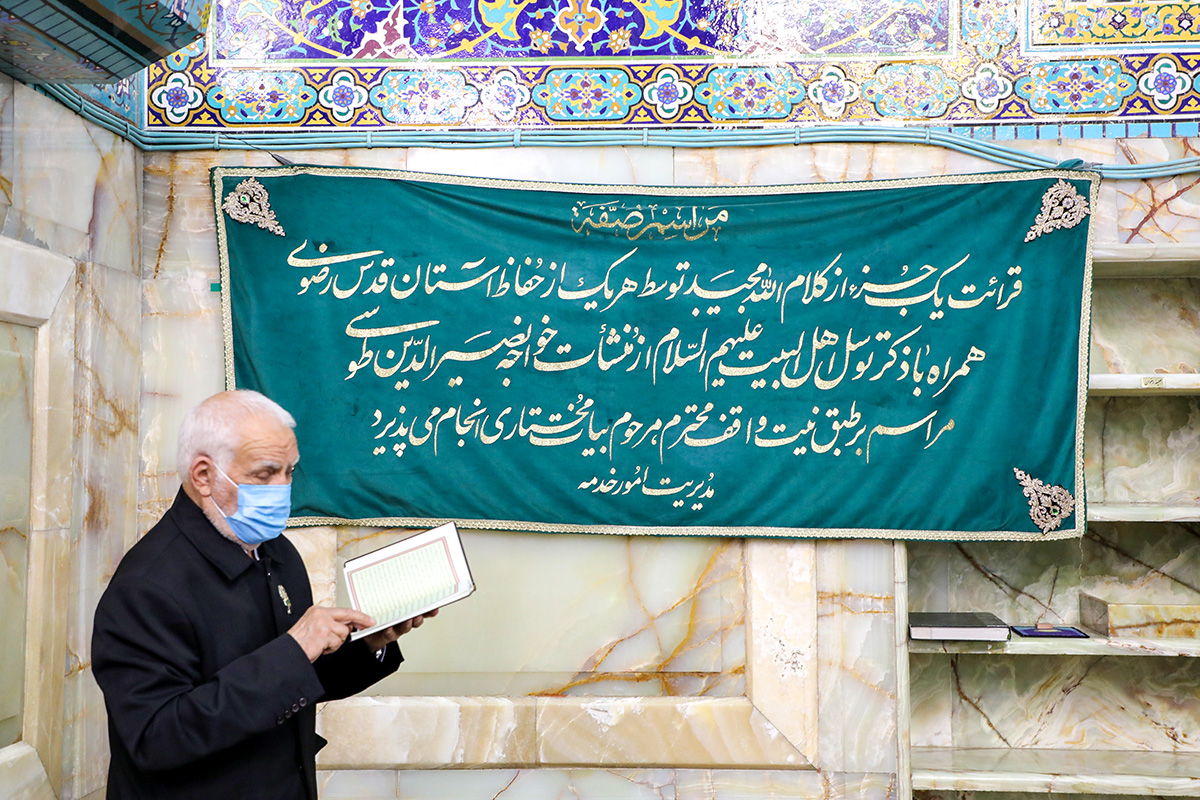 مراسم صفّه
قرائت یک جزء از کلام الله مجید توسط هر یک از حُفاظ آستان قدس رضوی
همراه با ذکر توسل اهل البیت علیهم السلام از مُنشأت خواجه نصیر الدّین طوسی
مراسم بر طبق نیت واقف محترم مرحوم بیات مختاری انجام می پذیرد
مدیریت امور خدمه